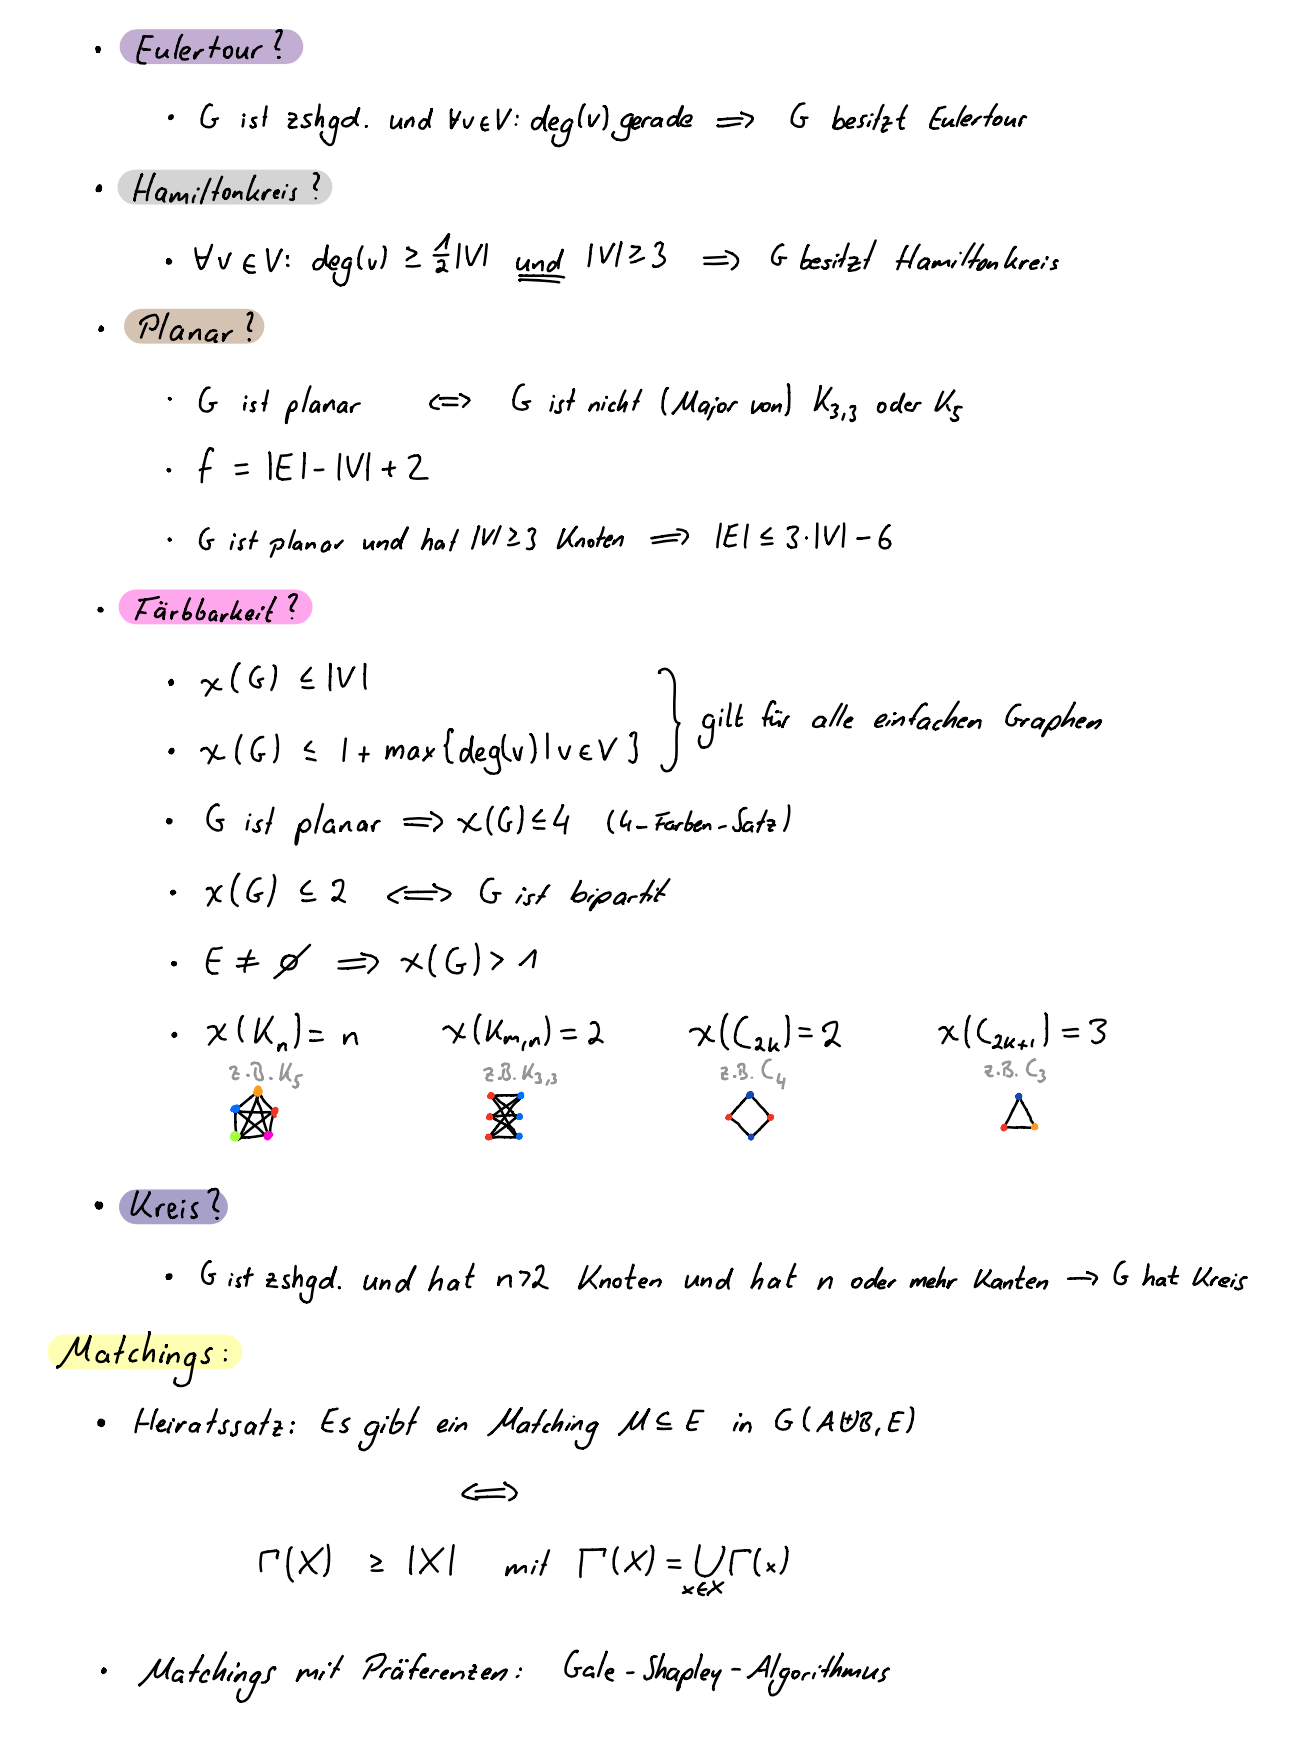 • Eulertour?
• G ist zshgd. und ∀v∈V: deg(v) gerade ⟹ G besitzt Eulertour
• Hamiltonkreis?
• ∀v∈V: deg(v) ≥ 1/2|V| und |V|≥3 ⟹ G besitzt Hamiltonkreis
• Planar?
• G ist planar ⟺ G ist nicht (Major von) K₃,₃ oder K₅
• f = |E|-|V|+2
• G ist planar und hat |V|≥3 Knoten ⟹ |E| ≤ 3·|V|-6
• Färbbarkeit?
• χ(G) ≤ |V|
• χ(G) ≤ 1+ max{deg(v)|v∈V} } gilt für alle einfachen Graphen
• G ist planar ⟹ χ(G)≤4 (4-Farben-Satz)
• χ(G) ≤ 2 ⟺ G ist bipartit
• E ≠ ∅ ⟹ χ(G) > 1
• χ(Kₙ) = n χ(Kₘ,ₙ) = 2 χ(C₂ₖ) = 2 χ(C₂ₖ₊₁) = 3
z.B. K₅ z.B. K₃,₃ z.B. C₄ z.B. C₃
• Kreis?
• G ist zshgd. und hat n>2 Knoten und hat n oder mehr Kanten → G hat Kreis
Matchings:
• Heiratssatz: Es gibt ein Matching M⊆E in G(A⊎B,E)
⟺
Γ(X) ≥ |X| mit Γ(X) = ⋃ Γ(x)
x∈X
• Matchings mit Präferenzen: Gale-Shapley-Algorithmus